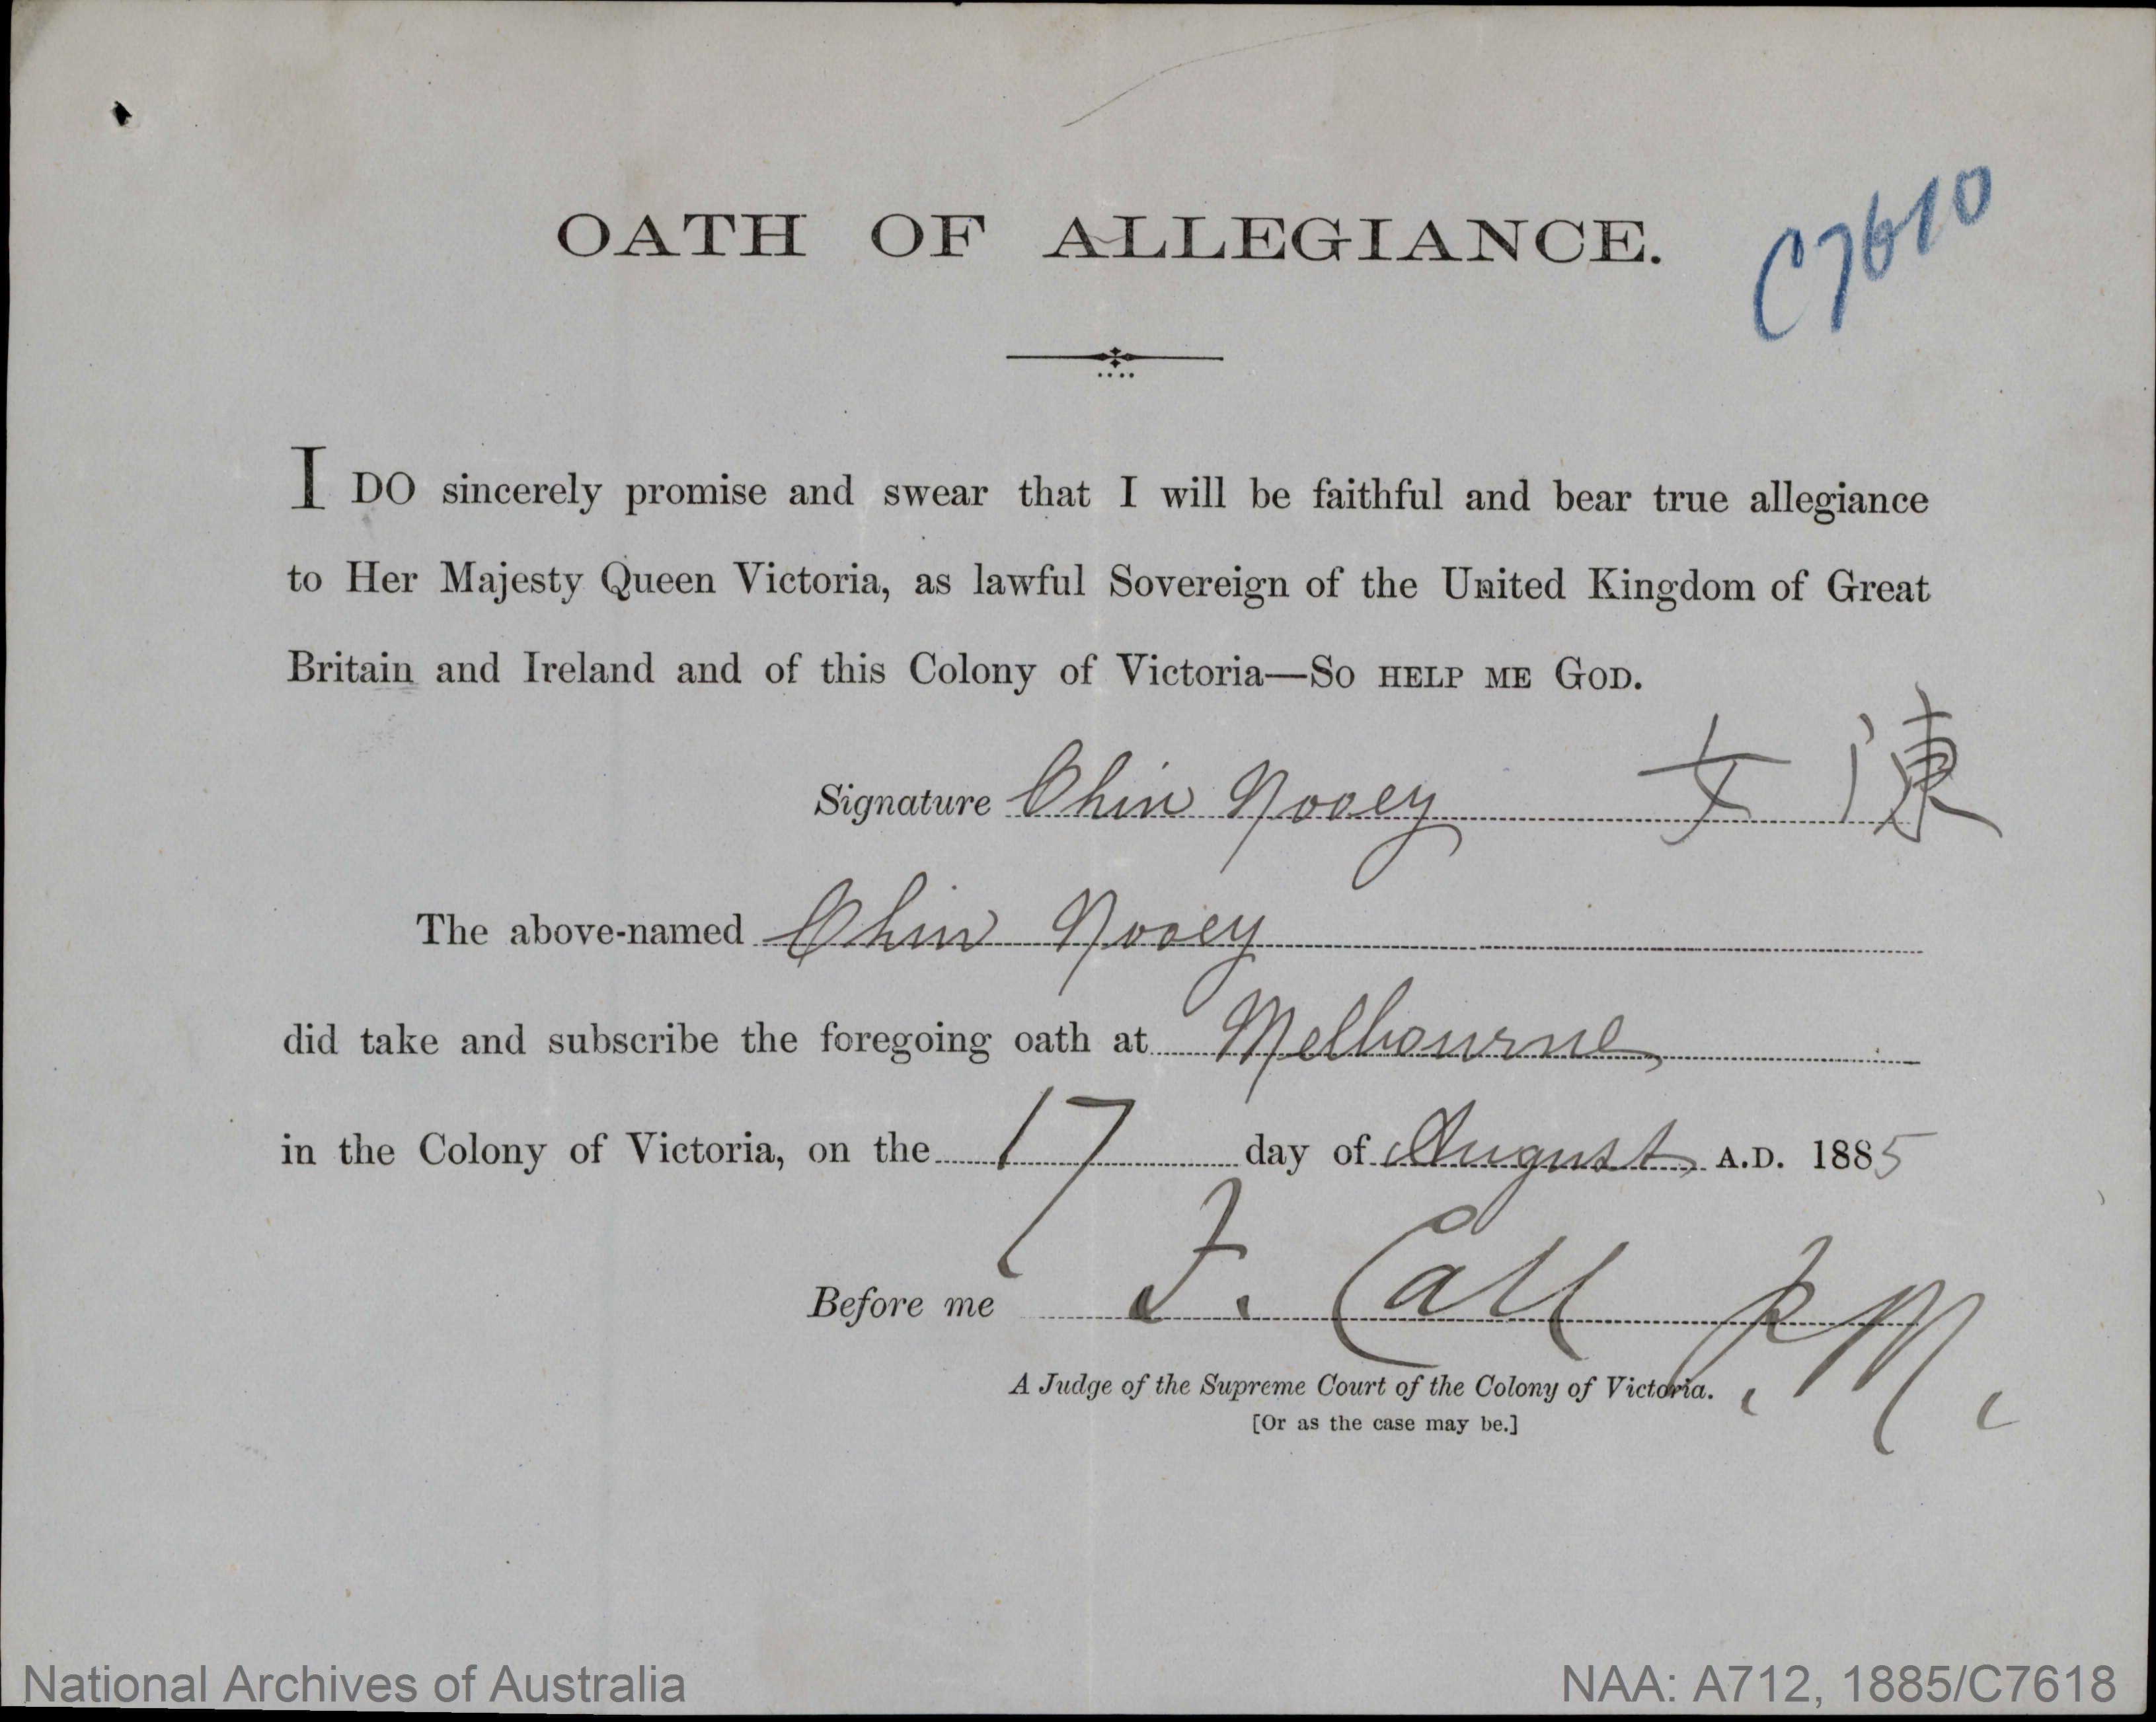 OATH OF ALLEGIANCE.
C7610
I DO sincerely promise and swear that I will be faithful and bear true allegiance
to Her Majesty Queen Victoria, as lawful Sovereign of the United Kingdom of Great
Britain and Ireland and of this Colony of Victoria—So HELP ME GOD.
Signature Chin Nooey 女 陳
The above-named Chin Nooey
did take and subscribe the foregoing oath at Melbourne,
in the Colony of Victoria, on the 17 day of August, A.D. 1885
Before me F. Call P.M.
A Judge of the Supreme Court of the Colony of Victoria.
[Or as the case may be.]
National Archives of Australia
NAA: A712, 1885/C7618